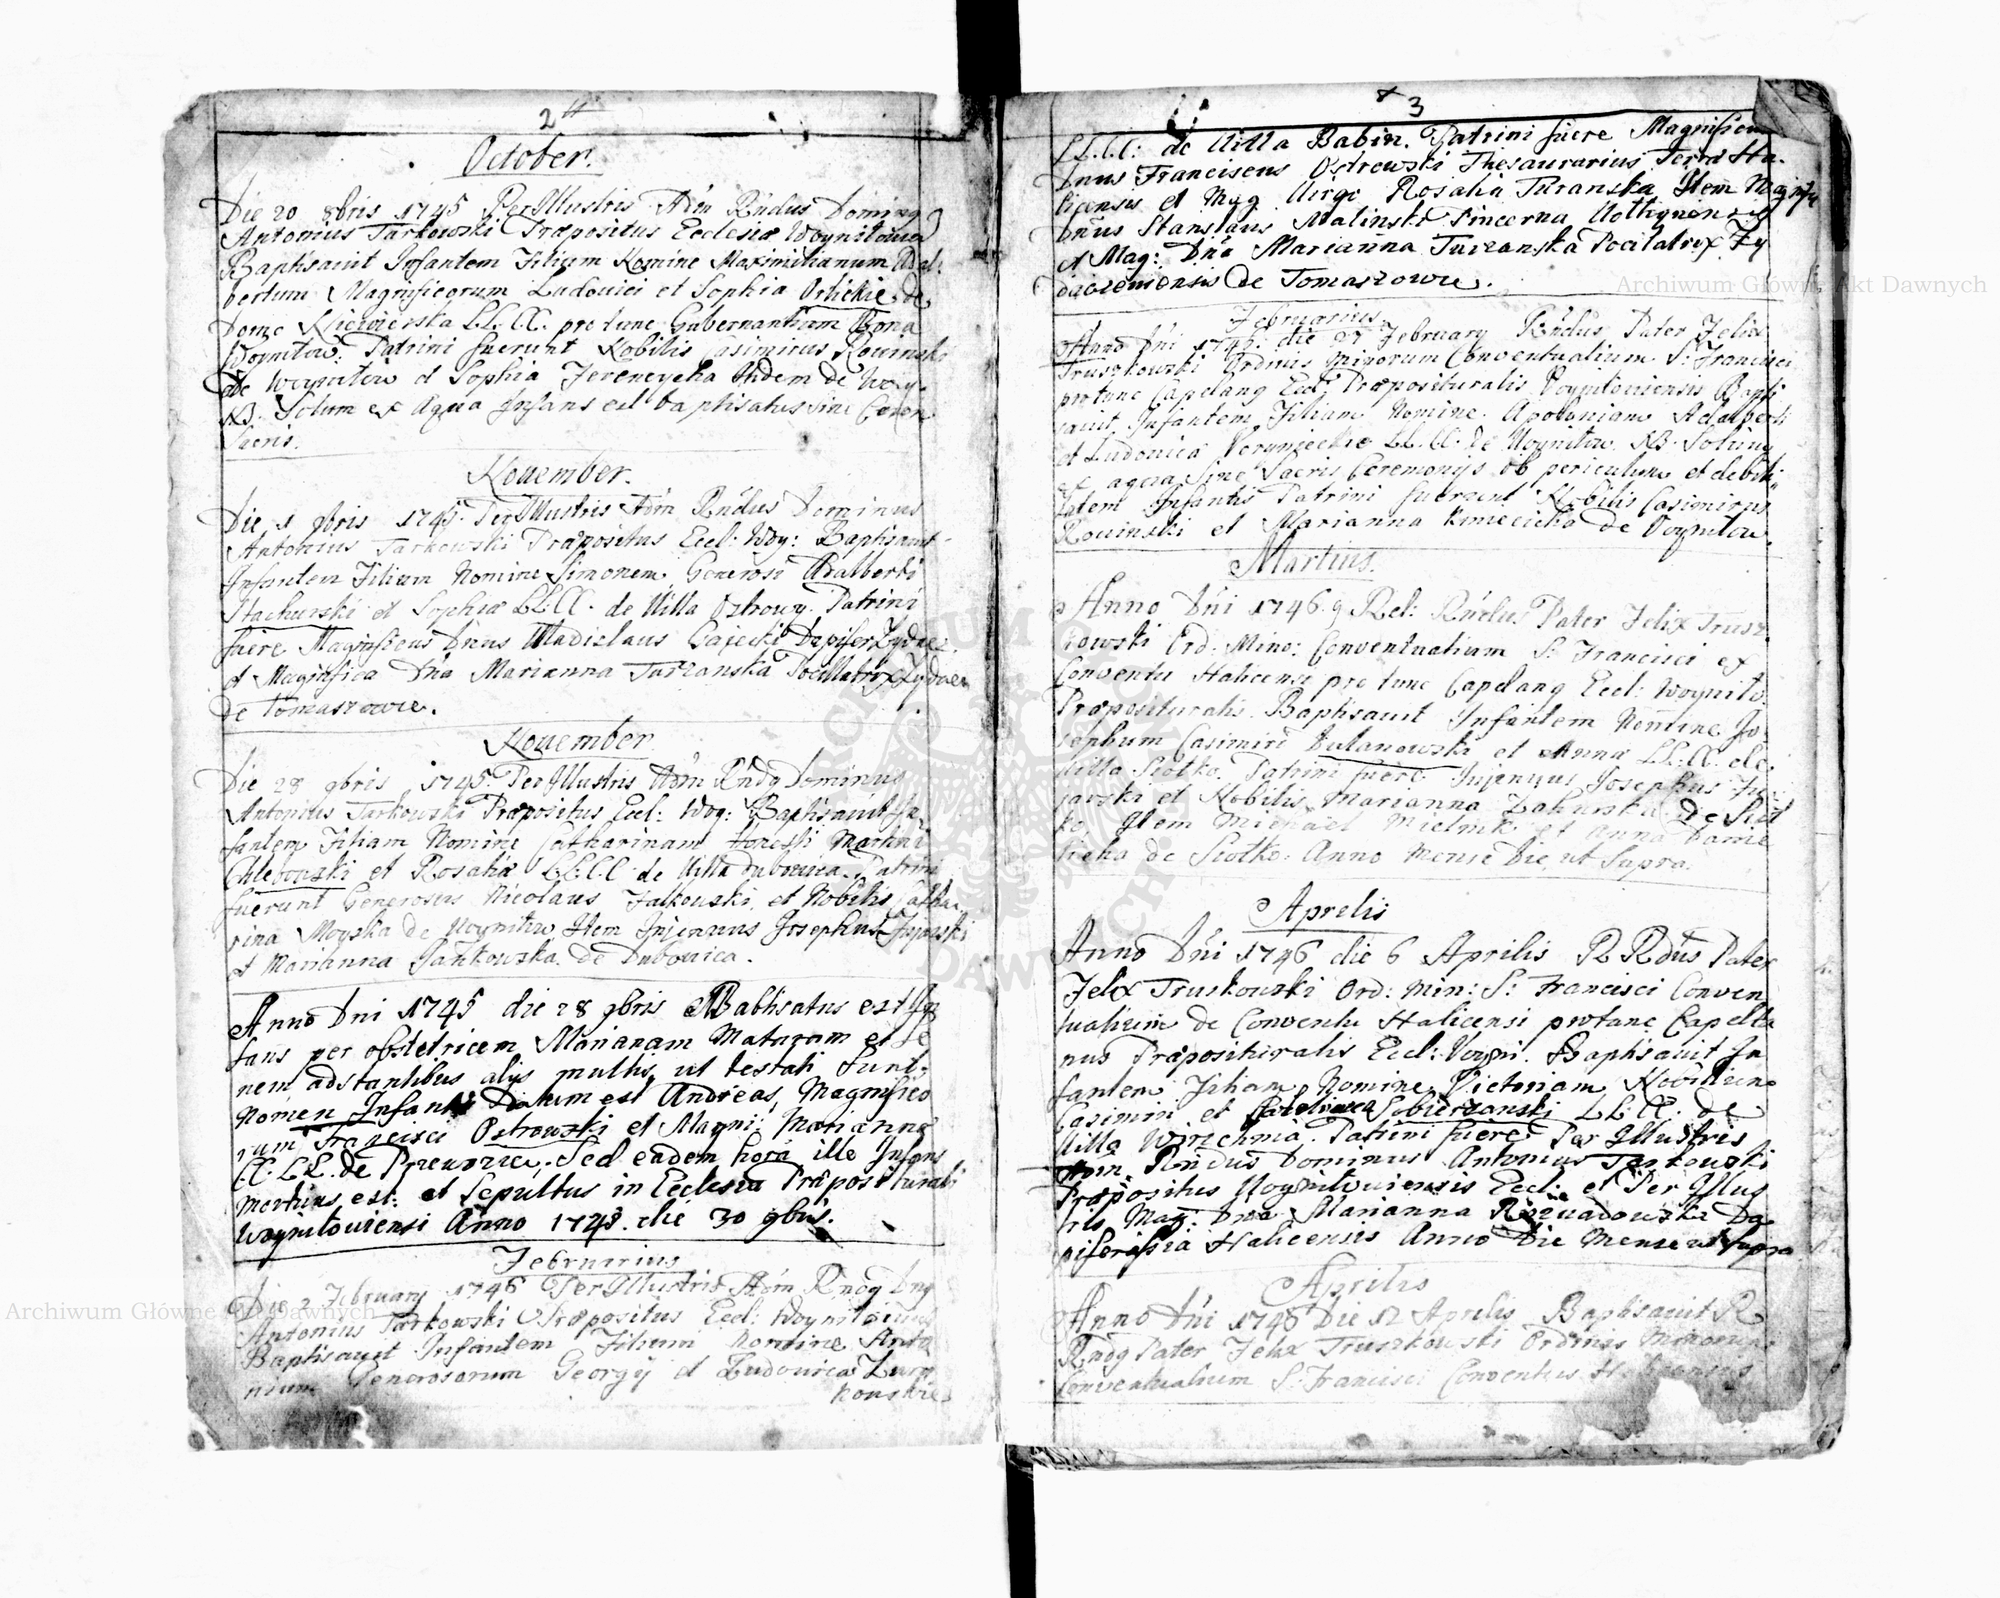 2
October.
Die 20 8bris 1745 PerIllustris Adm Rndus Dominq
Antonius Tarkowski Præpositus Ecclesiæ Woynitouien
Baptisauit Infantem Filium Nomine Maximilianum Adal:
bertum Magnificorum Ludouici et Sophia de
Domo LL.CC. pro tunc Gubernantium Bona
Woynitow: Patrini fuerunt Nobilis Casimirus Rowinski
de Woynitow et Sophia Ferencycka itidem de Woy:
NB. Solum ex Aqua Infans est baptisatus sine Cerem
Sacris.
November.
Die 1 9bris 1745. PerIllustris Adm Rndus Dominus
Antonius Tarkowski Præpositus Eccl: Woy: Baptisauit
Infantem Filium Nomine Simonem Generosi Adalberti
Stachurski et Sophiæ LL.CC. de Uilla Ostrowy. Patrini
fuere Magnificus Dnus Wladislaus Gajecki Dapifer Zydac:
et Magnifica Dna Marianna Turzanska Pocillatrix Zydacz
de Tomaszowce.
November
Die 28 9bris 1745. PerIllustris Adm Rndq Dominus
Antonius Tarkowski Præpositus Eccl: Woy: Baptisauit In
fantem Filiam Nomine Catharinam Honesti Martini
Chlebowski et Rosalia LLCC de Uilla Dubowica. Patrini
fuerunt Generosus Nicolaus Falkouski, et Nobilis Catha
rina Moyska de Woynitow Item Ingenuus Josephus Jujawski
et Marianna Jankowska de Dubouica.
Anno Dni 1745 die 28 9bris Babtisatus est In
fans per obstetricem Marianam Mataram et Se
nem adstantibus alys multis, ut testati sunt,
Nomen Infanti Datum est Andreas, Magnifico
rum Francisci Ostrowski et Magni: Marianna
CC. LL. de Przewoziec. Sed eadem hora ille Infans
Mortuus est: et Sepultus in Ecclesia Præpositurali
Woynitouiensi Anno 1745. die 30 9bris.
Februarius
Die 2 February 1746 PerIllustris Adm Rndq Dnq
Antonius Tarkowski Præpositus Eccl: Woynitouiens
Baptisauit Infantem Filium Nomine Anto
nium Generosorum Georgij et Ludouica
3
LL.CC: de Uilla Babin. Patrini fuere Magnificus
Dnus Franciscus Ostrowski Thesaurarius Terræ Ha
licensis et Mag Uirgo Rosalia Turanska Item Magnificus
Dnus Stanslaus Malinski Pincerna Wolhynensis
et Mag: Dna Marianna Turzanska Pocilatrix Zy
daczowiensis de Tomaszowce.
Februarius
Anno Dni 1746. die 27 February Rndus Pater Felix
Truszkowski Ordinis Minorum Conuentualium S: Francisci
protunc Capelanq Eccl: Præposituralis Woynitouiensis Bapti
sauit Infantem Filiam Nomine Apoloniam Adalberti
et Ludouica LL.CC. de Woynitow NB. Solum
ex aqua Sine Sacris Ceremonijs ob periculum et debili
tatem Infantis Patrini fuerunt Nobilis Casimirus
Rowinski et Marianna de Woynitow.
Martius.
Anno Dni 1746. 9 Rel: Rndus Pater Felix Trusz
kowski Ord: Mino: Conventualium S. Francisci ex
Conventu Halicensi pro tunc Capelanq Eccl: Woynito
Præposituralis Baptisauit Infantem Nomine Jo
sephum Casimiri Dulanowska et Anna LL.CC. de
Uilla Siolko. Patrini fuere Ingenuus Josephus Ju
jawski et Nobilis Marianna de Siol
ko, Item Michael Mielnik et Anna
de Siolko. Anno Mense Die ut Supra.
Aprelis
Anno Dni 1746 die 6 Aprilis R Rdus Pater
Felix Truskowski Ord: Min: S: Francisci Conven
tualium de Conventu Halicensi protunc Capella
nus Præposituralis Eccl: Woyni. Baptisauit In
fantem Filiam Nomine Victoriam Nobilium
Casimiri et Sobierzanski LL.CC. de
Uilla Wirzchnia. Patrini fuere Per Illustris
Adm Rndus Dominus Antonius Tarkowski
Præpositus Woynitouiensis Eccl: et Per Illus
tris Mag: Dna Marianna Rozwadowska Da
piferissa Halicensis Anno Die Mense ut supra
Aprilis
Anno Dni 1746 Die 12 Aprilis Baptisauit R
Rndq Pater Felix Truszkowski Ordinis Minorum
Conventualium S: Francisci Conventus Halicensis
Archiwum Główne Akt Dawnych
Archiwum Główne Akt Dawnych